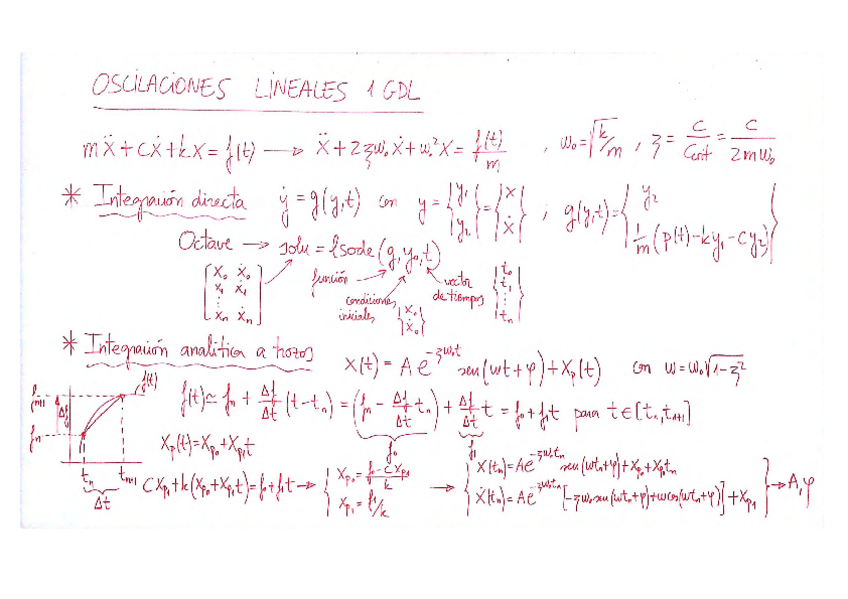 OSCILACIONES LINEALES 1 GDL
mẍ + cẋ + kx = f(t) ⟶ ẍ + 2ξω₀ẋ + ω₀²x = f(t)/m , ω₀ = √(k/m) , ξ = c/Ccrit = c/(2mω₀)
* Integración directa ẏ = g(y,t) con y = {y₁ y₂} = {x ẋ} ; g(y,t) = {y₂ 1/m (p(t) - ky₁ - cy₂)}
Octave ⟶ solu = lsode(g, y₀, t)
[x₀ ẋ₀
x₁ ẋ₁
⋮
xₙ ẋₙ]
función
condiciones iniciales {x₀ ẋ₀}
vector de tiempos {t₀ t₁ ⋮ tₙ}
* Integración analítica a trozos x(t) = A e^(-ξω₀t) sen(ωt + φ) + xp(t) con ω = ω₀√(1-ξ²)
fₙ₊₁ Δf fₙ f(t) tₙ tₙ₊₁ Δt
f(t) ≃ fₙ + Δf/Δt (t - tₙ) = (fₙ - Δf/Δt tₙ) + Δf/Δt t = f₀ + f₁t para t ∈ [tₙ, tₙ₊₁]
f₀ f₁
xp(t) = xp₀ + xp₁t
cxp₁ + k(xp₀ + xp₁t) = f₀ + f₁t ⟶ {xp₀ = (f₀ - cxp₁)/k xp₁ = f₁/k
⟶ {x(tₙ) = Ae^(-ξω₀tₙ) sen(ωtₙ + φ) + xp₀ + xp₁tₙ
ẋ(tₙ) = Ae^(-ξω₀tₙ) [-ξω₀ sen(ωtₙ + φ) + ω cos(ωtₙ + φ)] + xp₁} ⟶ A, φ